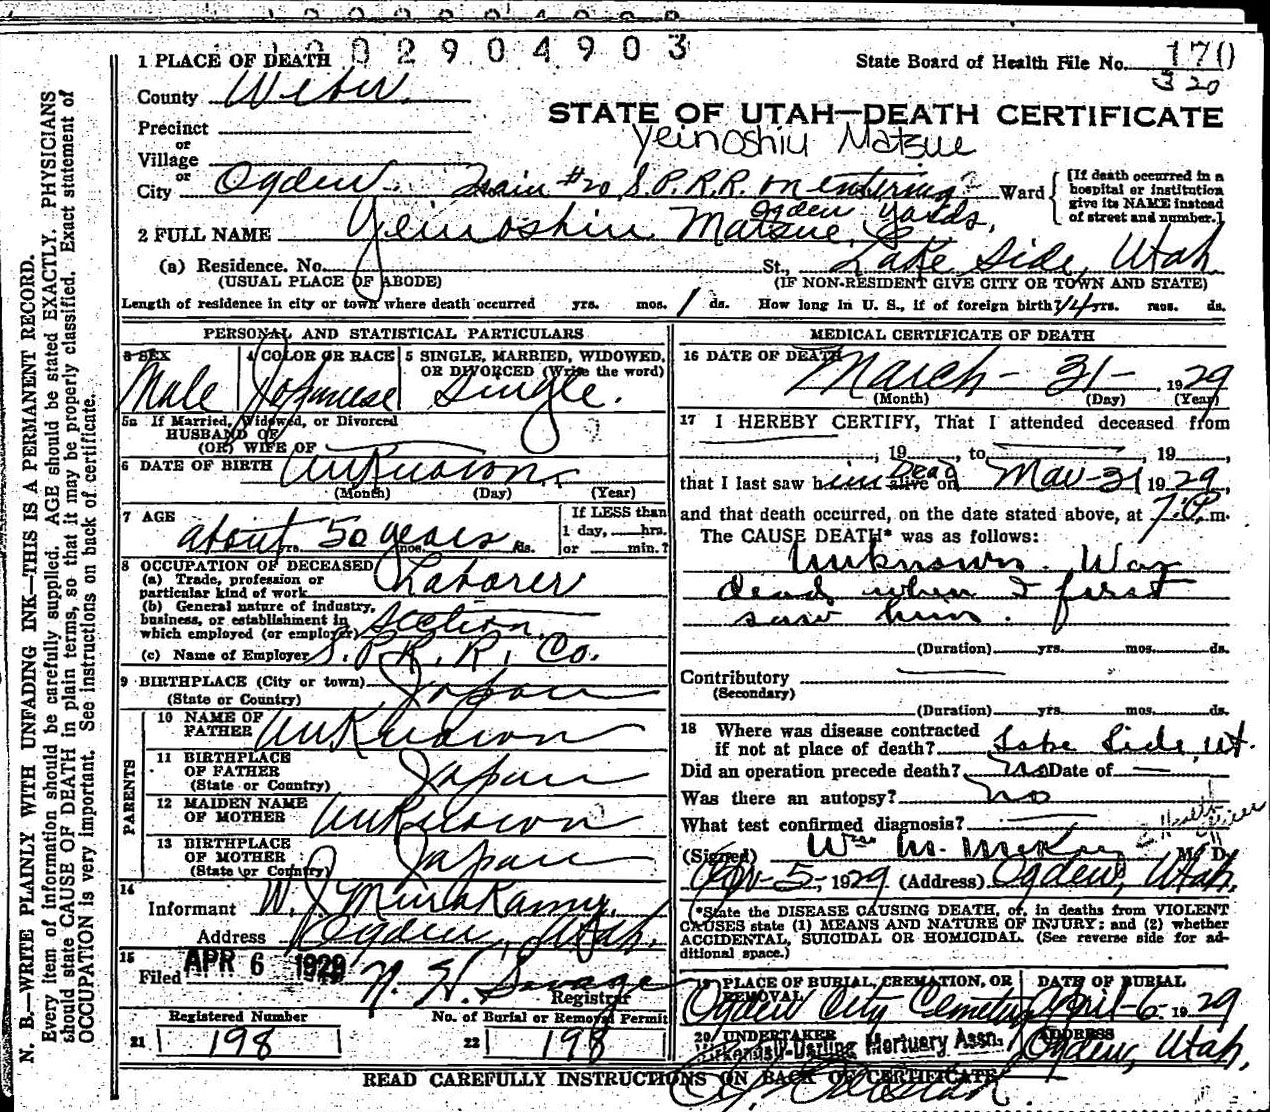 0 0 2 9 0 4 9 0 3
1 PLACE OF DEATH
State Board of Health File No. 170
320
County Weber.
STATE OF UTAH—DEATH CERTIFICATE
Precinct
or
Yeinoshiu Matsue
Village
or
City Ogden. Train #20 S.P.R.R. on entering Ward
Ogden Yards,
[If death occurred in a
hospital or institution
give its NAME instead
of street and number.]
2 FULL NAME Yeinoshiu Matsue,
(a) Residence. No. St., Lake Side, Utah
(USUAL PLACE OF ABODE) (IF NON-RESIDENT GIVE CITY OR TOWN AND STATE)
Length of residence in city or town where death occurred yrs. mos. 1 ds. How long in U. S., if of foreign birth? 14 yrs. mos. ds.
PERSONAL AND STATISTICAL PARTICULARS
3 SEX 4 COLOR OR RACE 5 SINGLE, MARRIED, WIDOWED,
OR DIVORCED (Write the word)
Male Japanese Single.
5a If Married, Widowed, or Divorced
HUSBAND OF
(OR) WIFE OF
6 DATE OF BIRTH Unknown.
(Month) (Day) (Year)
7 AGE about 50 years
yrs. mos. ds.
If LESS than
1 day, hrs.
or min.?
8 OCCUPATION OF DECEASED
(a) Trade, profession or
particular kind of work Laborer
(b) General nature of industry,
business, or establishment in
which employed (or employer) Section
(c) Name of Employer S. P. R. R. Co.
9 BIRTHPLACE (City or town) Japan
(State or Country)
PARENTS
10 NAME OF
FATHER Unknown
11 BIRTHPLACE
OF FATHER Japan
(State or Country)
12 MAIDEN NAME
OF MOTHER Unknown
13 BIRTHPLACE
OF MOTHER Japan
(State or Country)
14
Informant W. J. Murakamy.
Address Ogden, Utah.
15
Filed APR 6 1929 N. H. Savage
Registrar
Registered Number No. of Burial or Removal Permit
21 198 22 198
MEDICAL CERTIFICATE OF DEATH
16 DATE OF DEATH March - 31 - , 1929
(Month) (Day) (Year)
17 I HEREBY CERTIFY, That I attended deceased from
, 19 , to , 19 ,
that I last saw him alive on Dead Mar-31 1929,
and that death occurred, on the date stated above, at 7. P. m.
The CAUSE DEATH* was as follows:
Unknown. Was
dead when I first
saw him.
(Duration) yrs. mos. ds.
Contributory
(Secondary)
(Duration) yrs. mos. ds.
18 Where was disease contracted
if not at place of death? Lake Side, Ut.
Did an operation precede death? No Date of —
Was there an autopsy? no
What test confirmed diagnosis?
Health Officer
(Signed) Wm M. McKay M. D.
Apr-5-, 1929 (Address) Ogden, Utah.
*State the DISEASE CAUSING DEATH, or, in deaths from VIOLENT
CAUSES state (1) MEANS AND NATURE OF INJURY: and (2) whether
ACCIDENTAL, SUICIDAL OR HOMICIDAL. (See reverse side for ad-
ditional space.)
19 PLACE OF BURIAL, CREMATION, OR
REMOVAL
DATE OF BURIAL
Ogden City Cemetery April-6- 1929
20 UNDERTAKER ADDRESS
Mortuary Assn. Ogden, Utah,
READ CAREFULLY INSTRUCTIONS ON BACK OF CERTIFICATE
N. B.—WRITE PLAINLY WITH UNFADING INK—THIS IS A PERMANENT RECORD.
Every item of information should be carefully supplied. AGE should be stated EXACTLY. PHYSICIANS
should state CAUSE OF DEATH in plain terms, so that it may be properly classified. Exact statement of
OCCUPATION is very important. See instructions on back of certificate.